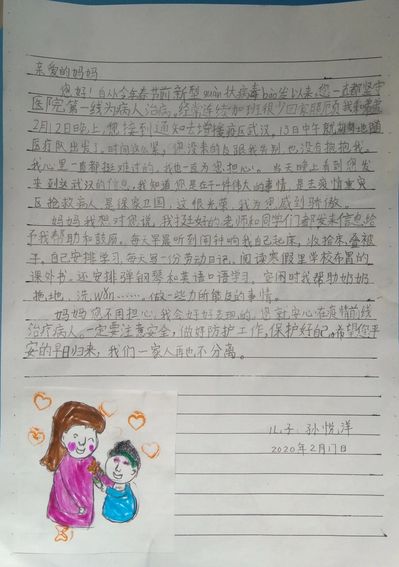 亲爱的妈妈
您好！自从今年春节前新型guān状病毒bào发以来，您一直都坚守
医院第一线为病人治病。经常连续加班很少回家照顾我和爸爸
2月12日晚上，您接到通知去增援疫区武汉，13日中午就
医疗队出发了。时间这么紧，您没来的及跟我告别，也没有抱抱我。
我心里一直都挺难过的，我也一直为您担心。当天晚上看到您发
来到达武汉的信息，我知道您是在干一件伟大的事情，是去疫情重灾
区抢救病人是保家卫国，这很光荣，我为您感到骄傲。
妈妈我想对您说，我挺好的老师和同学们都发来信息给
予我帮助和鼓励。每天早晨听到闹钟响我自己起床，收拾床，叠被
子，自己安排学习，每天写一份劳动日记，阅读寒假里学校布置的
课外书。还安排弹钢琴和英语口语学习，空闲时我帮助奶奶
拖地，洗wǎn……，做一些力所能及的事情。
妈妈您不用担心，我会好好表现的，您就安心在疫情前线
治疗病人。一定要注意安全，做好防护工作，保护好自己。希望您平
安的早日归来，我们一家人再也不分离。
儿子：孙悦洋
2020年2月17日